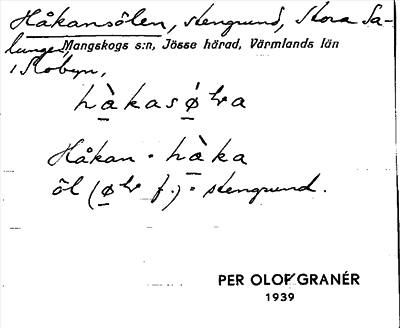 Håkansölen, stengrund, Stora Sa-
lungen,
Mangskogs s:n, Jösse härad, Värmlands län
i Slobyn,
hàkasǿtra
Håkan = hàka
öl (øtr f.) = stengrund.
PER OLOF GRANÉR
1939